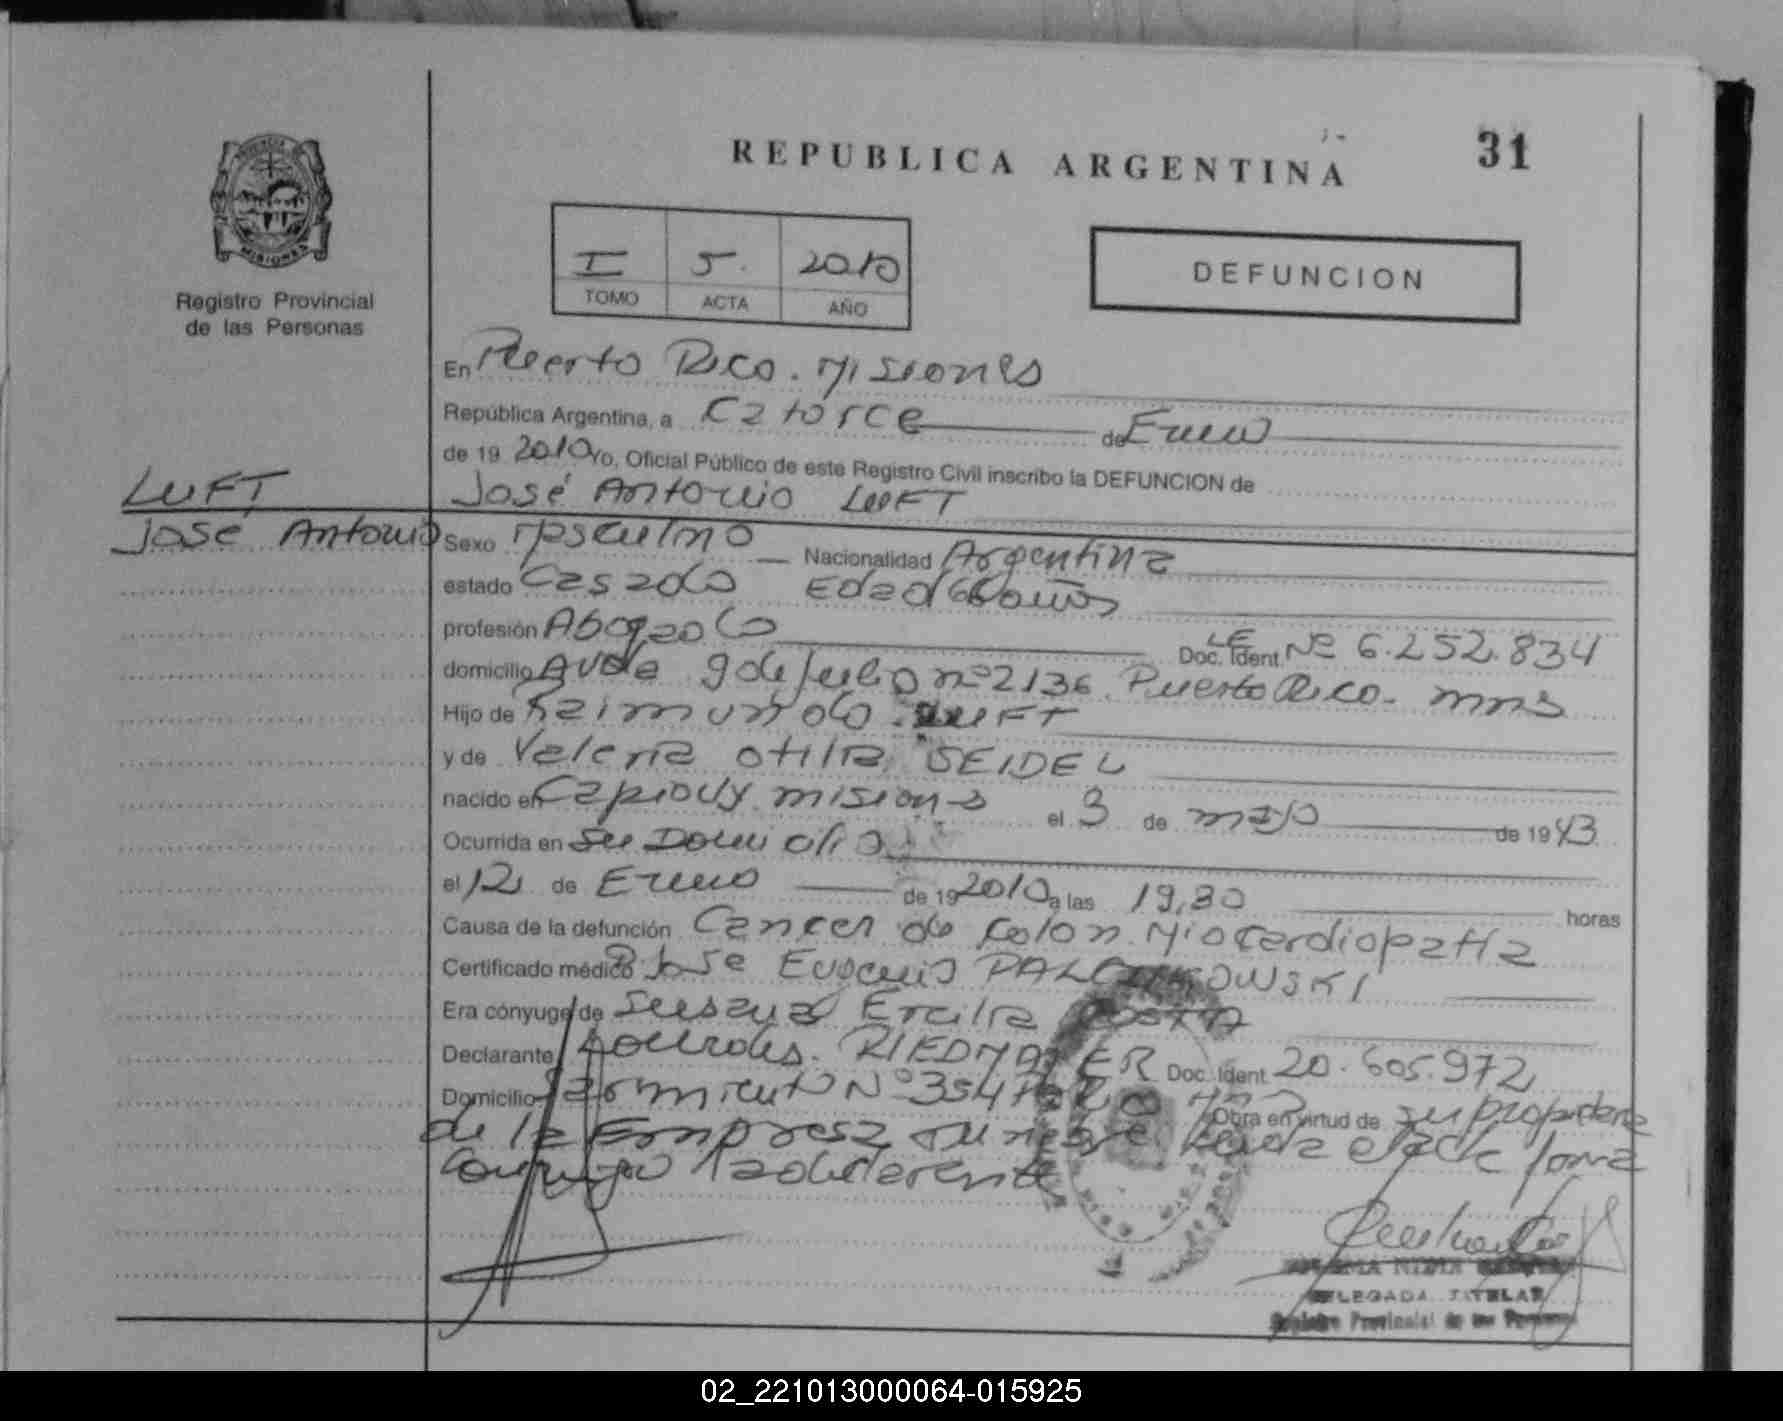 REPUBLICA ARGENTINA
31
Registro Provincial
de las Personas
I 5. 2010
TOMO ACTA AÑO
DEFUNCION
En Puerto Rico. Misiones
República Argentina, a Catorce de Enero
de 19 2010 Yo, Oficial Público de este Registro Civil inscribo la DEFUNCION de
LUFT
José Antonio LUFT
José Antonio
Sexo Masculino Nacionalidad Argentina
estado Casado Edad 66 años
profesión Abogado Doc. Ident. LE Nº 6.252.834
domicilio Avda 9 de Julio nº 2136. Puerto Rico. mns
Hijo de Raimundo LUFT
y de Valeria Otilia SEIDEL
nacido en Capiovy. misiones el 3 de mayo de 1943
Ocurrida en su Domicilio
el 12 de Enero de 19 2010 a las 19,30 horas
Causa de la defunción Cancer de Colon. Miocardiopatia
Certificado médico José Eugenio
Era cónyuge de Susana Ercilia
Declarante Lourdes. RIEDMAIER Doc. Ident. 20.605.972
Domicilio Sarmiento Nº 354 Obra en virtud de ser propietaria
de la Empresa
DELEGADA TITULAR
Registro Provincial de las Personas
02_221013000064-015925